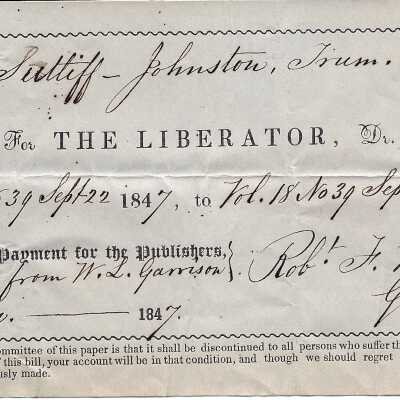 Sutliff – Johnston, Trum.
For THE LIBERATOR, Dr.
39 Sept 22 1847, to Vol. 18 No 39 Sep
Payment for the Publishers,
from W. L. Garrison } Robt. F.
—— 1847. G
ommittee of this paper is that it shall be discontinued to all persons who suffer th
f this bill, your account will be in that condition, and though we should regret
usly made.